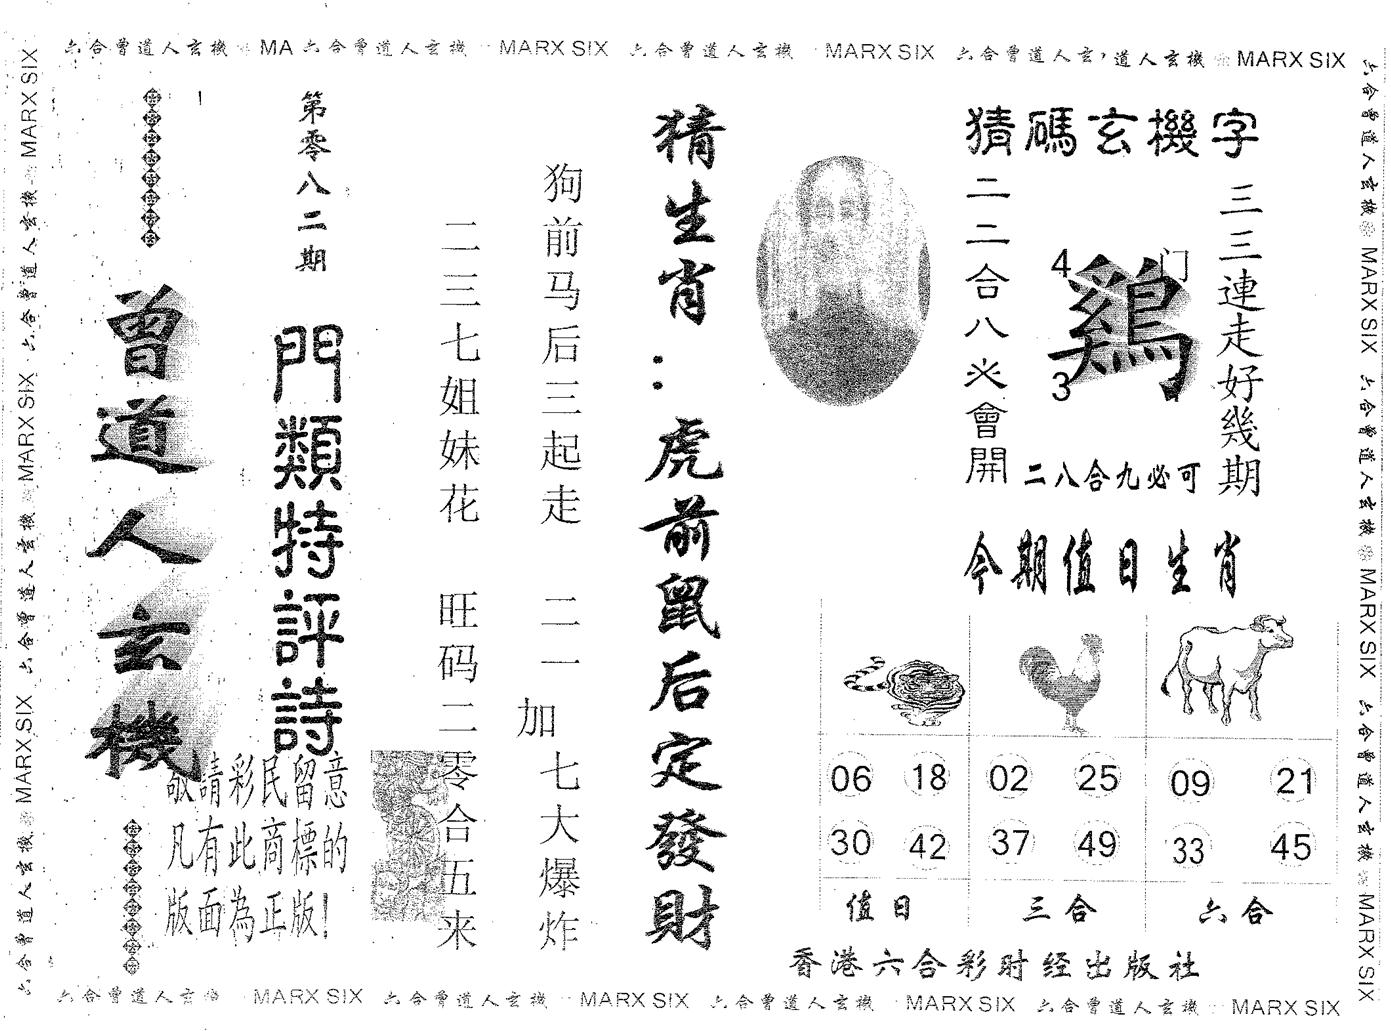 六合曾道人玄機 MA 六合曾道人玄機 MARX SIX 六合曾道人玄機 MARX SIX 六合曾道人玄,道人玄機 MARX SIX
六合曾道人玄機 MARX SIX 六合曾道人玄機 MARX SIX 六合曾道人玄機 MARX SIX
猜碼玄機字
三三連走好幾期
4
门
鷄
3
二二合八必會開
二八合九必可
今期值日生肖
06 18 02 25 09 21
30 42 37 49 33 45
值日 三合 六合
香港六合彩财经出版社
猜生肖:虎前鼠后定發財
狗前马后三起走 二一加七大爆炸
二三七姐妹花 旺码二零合五来
第零八二期
門類特評詩
敬請彩民留意
凡有此商標的
版面為正版!
曾道人玄機
六合曾道人玄機 MARX SIX 六合曾道人玄機 MARX SIX 六合曾道人玄機 MARX SIX
六合曾道人玄 MARX SIX 六合曾道人玄機 MARX SIX 六合曾道人玄機 MARX SIX 六合曾道人玄機 MARX SIX